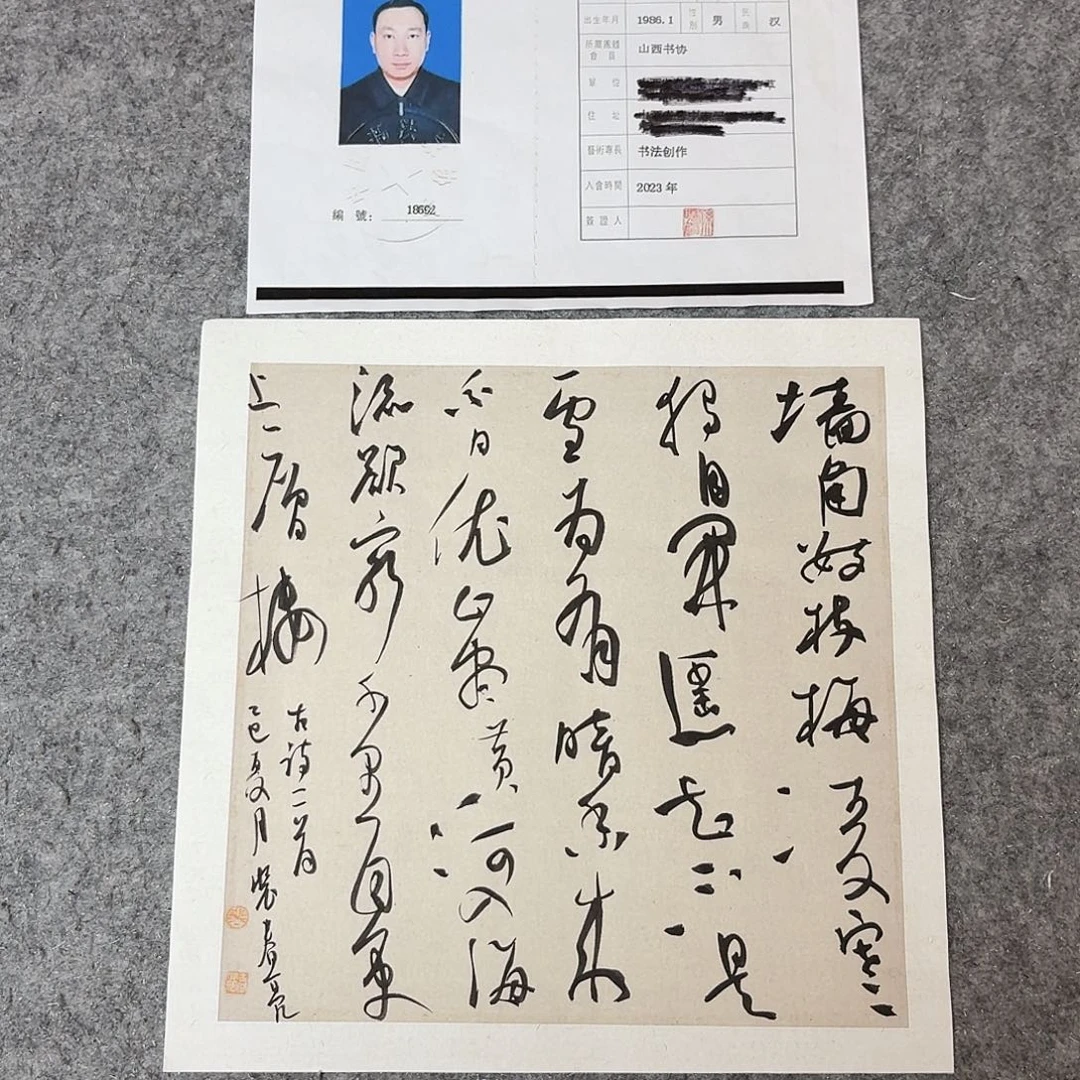 出生年月 1986.1 性別 男 民族 汉
所屬團體會員 山西书协
單位
住址
藝術專長 书法创作
入會時間 2023年
簽證人
編號: 18692
墙角数枝梅凌寒
独自开遥知不是
雪为有暗香来
白日依山尽黄河入海
流欲穷千里目更
上一層楼
古诗二首
乙巳夏月裴春亮